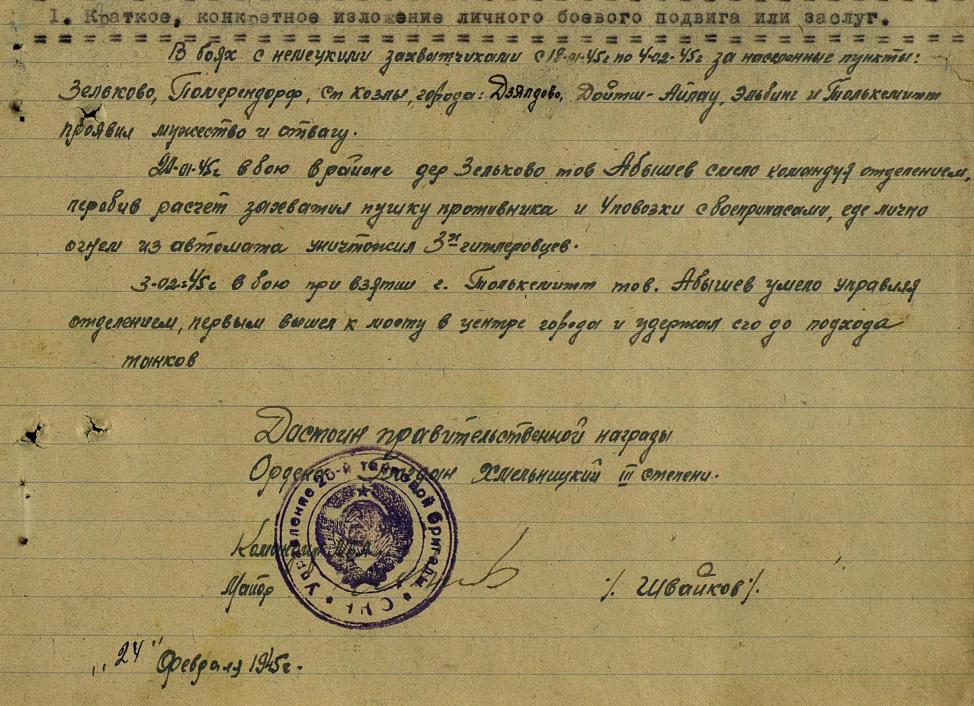 I. Краткое, конкретное изложение личного боевого подвига или заслуг.
В боях с немецкими захватчиками с 18-01-45г по 4-02-45г за населенные пункты:
Зельково, Померендорф, ст. козлы, города: Дзялдово, Дойтш-Айлау, Эльбинг и Толькемитт
проявил мужество и отвагу.
20-01-45г в бою в районе дер Зельково тов Абышев смело командуя отделением,
перебив расчет захватил пушку противника и 4 повозки с боеприпасами, где лично
огнем из автомата уничтожил 3х гитлеровцев.
3-02-45г в бою при взятии г. Толькемитт тов. Абышев умело управляя
отделением, первым вышел к мосту в центре города и удержал его до подхода
танков
Достоин правительственной награды
Ордена Богдан Хмельницкий III степени.
Управление 20-й танковой бригады
СНК
Командир
Майор /. Швайков /.
„24" Февраля 1945г.